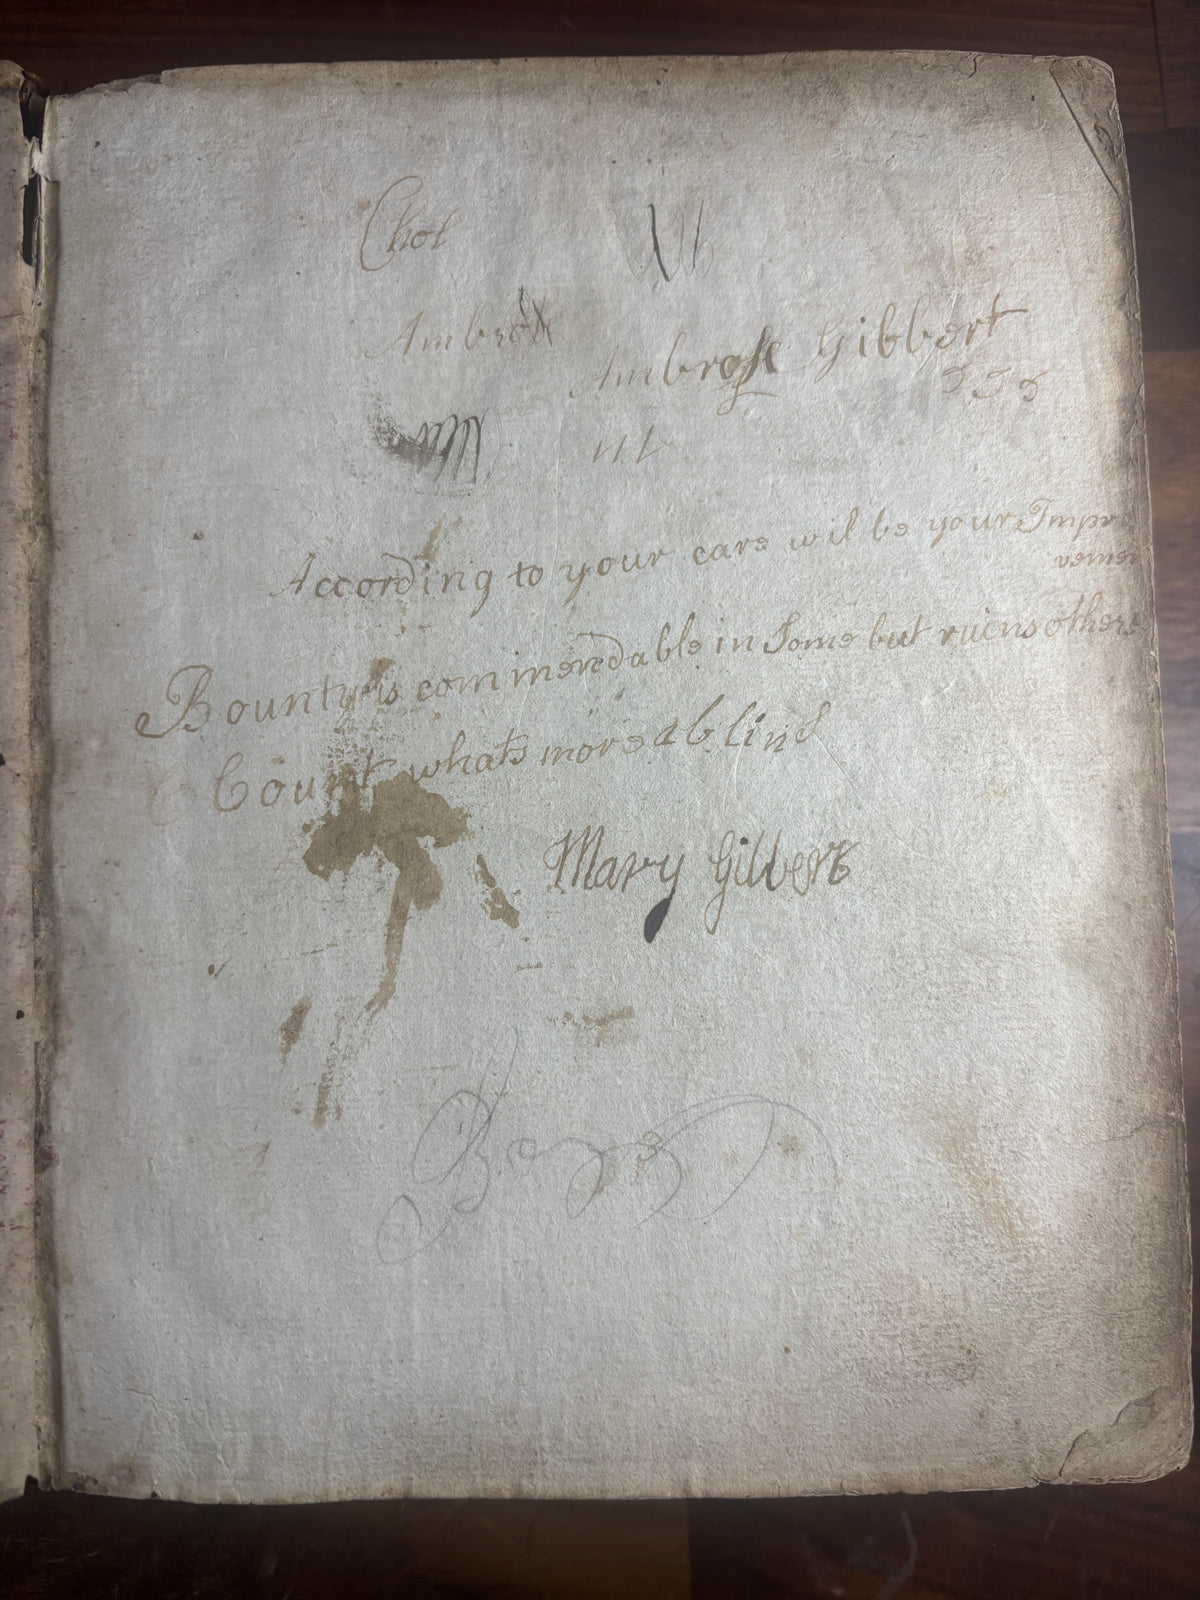 Chot
Ambro
Ambrose Gibbert
According to your care wil be your Impro
vemen
Bounty is commendable in Some but ruens others
Count whats more a blind
Mary Gilbert